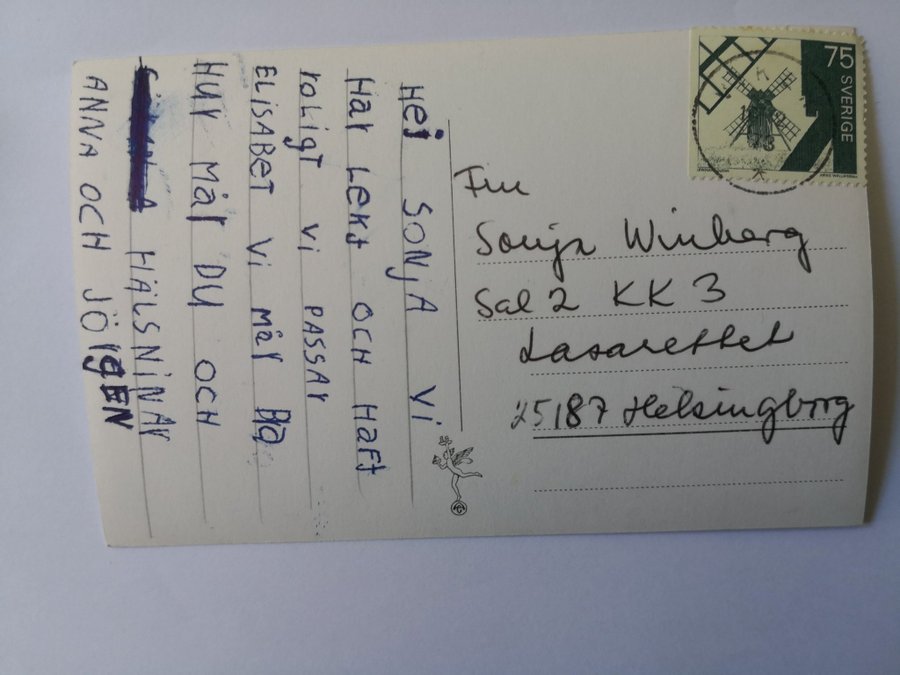 HEJ SONJA VI
HAR LEKT OCH HAFT
ROLIGT VI PASSAR
ELISABET VI MÅR BRA
HUR MÅR DU OCH
HÄLSNINAR
ANNA OCH JÖRGEN
75 SVERIGE
Fru
Sonja Winberg
Sal 2 KK 3
Lasarettet
25187 Helsingborg